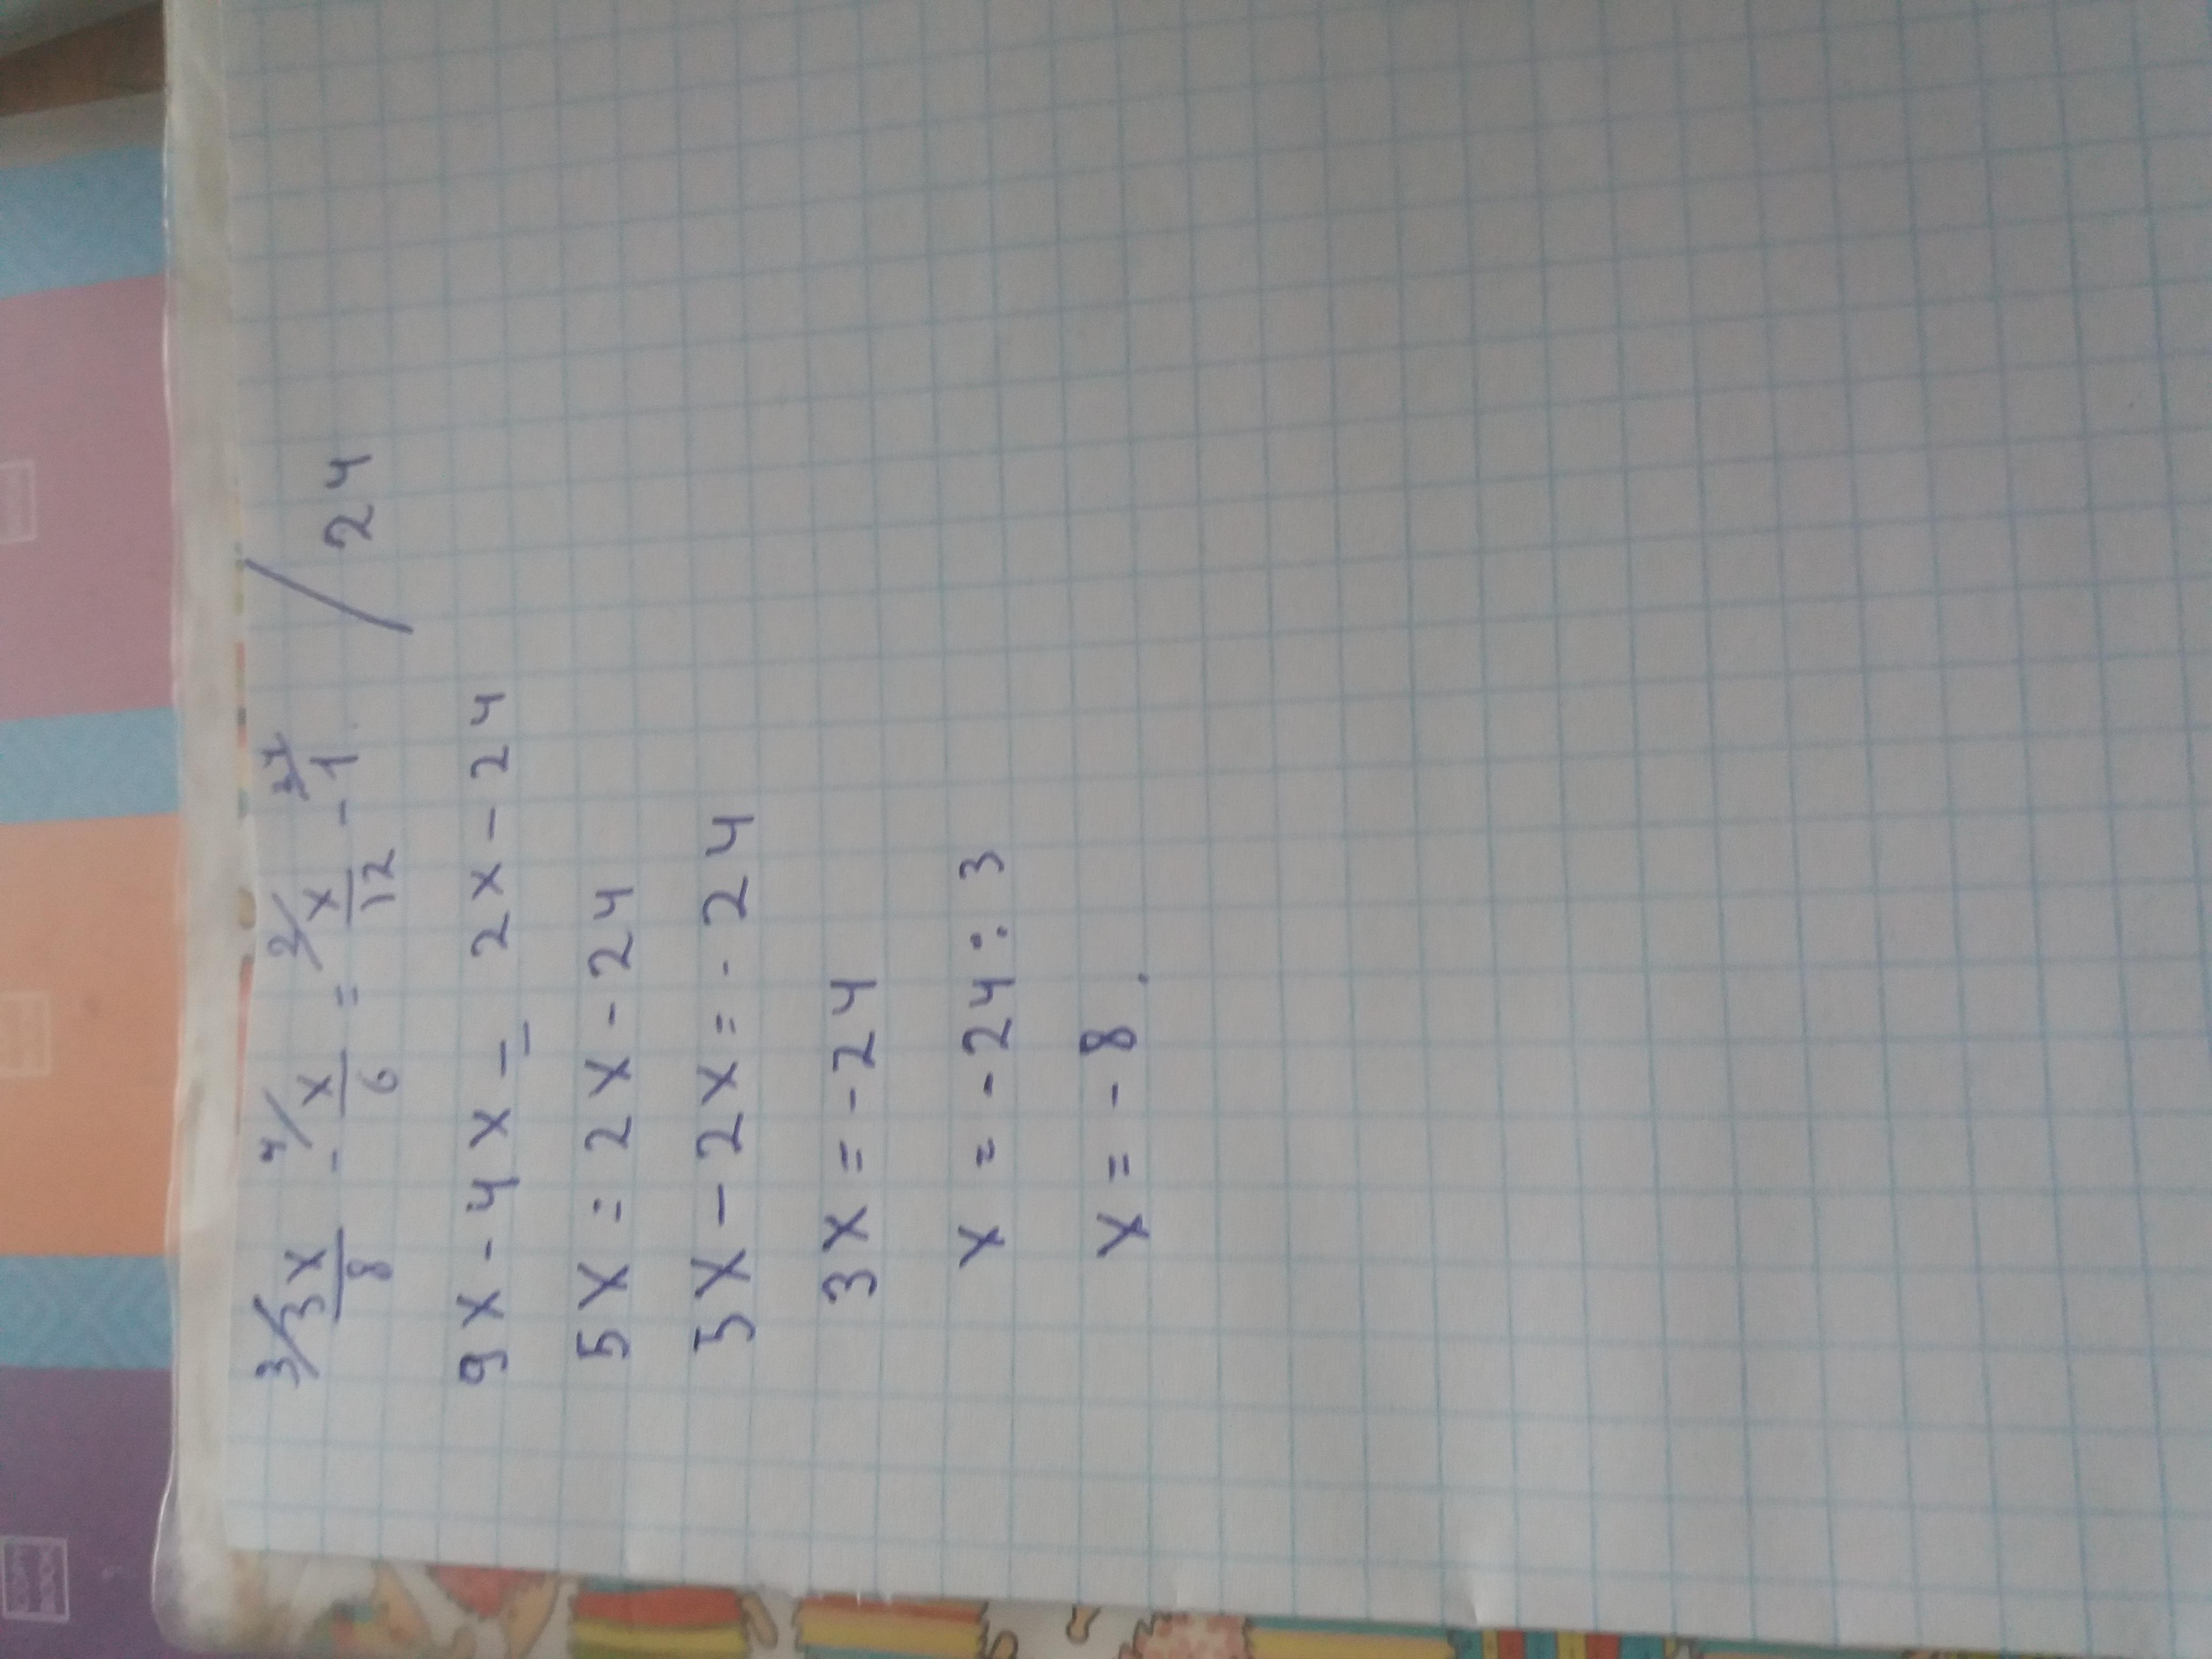 3/ 3x/8 - 4/ x/6 = 2/ x/12 - 24/ 1 / 24
9x - 4x = 2x - 24
5x = 2x - 24
5x - 2x = - 24
3x = - 24
x = - 24 : 3
x = - 8.